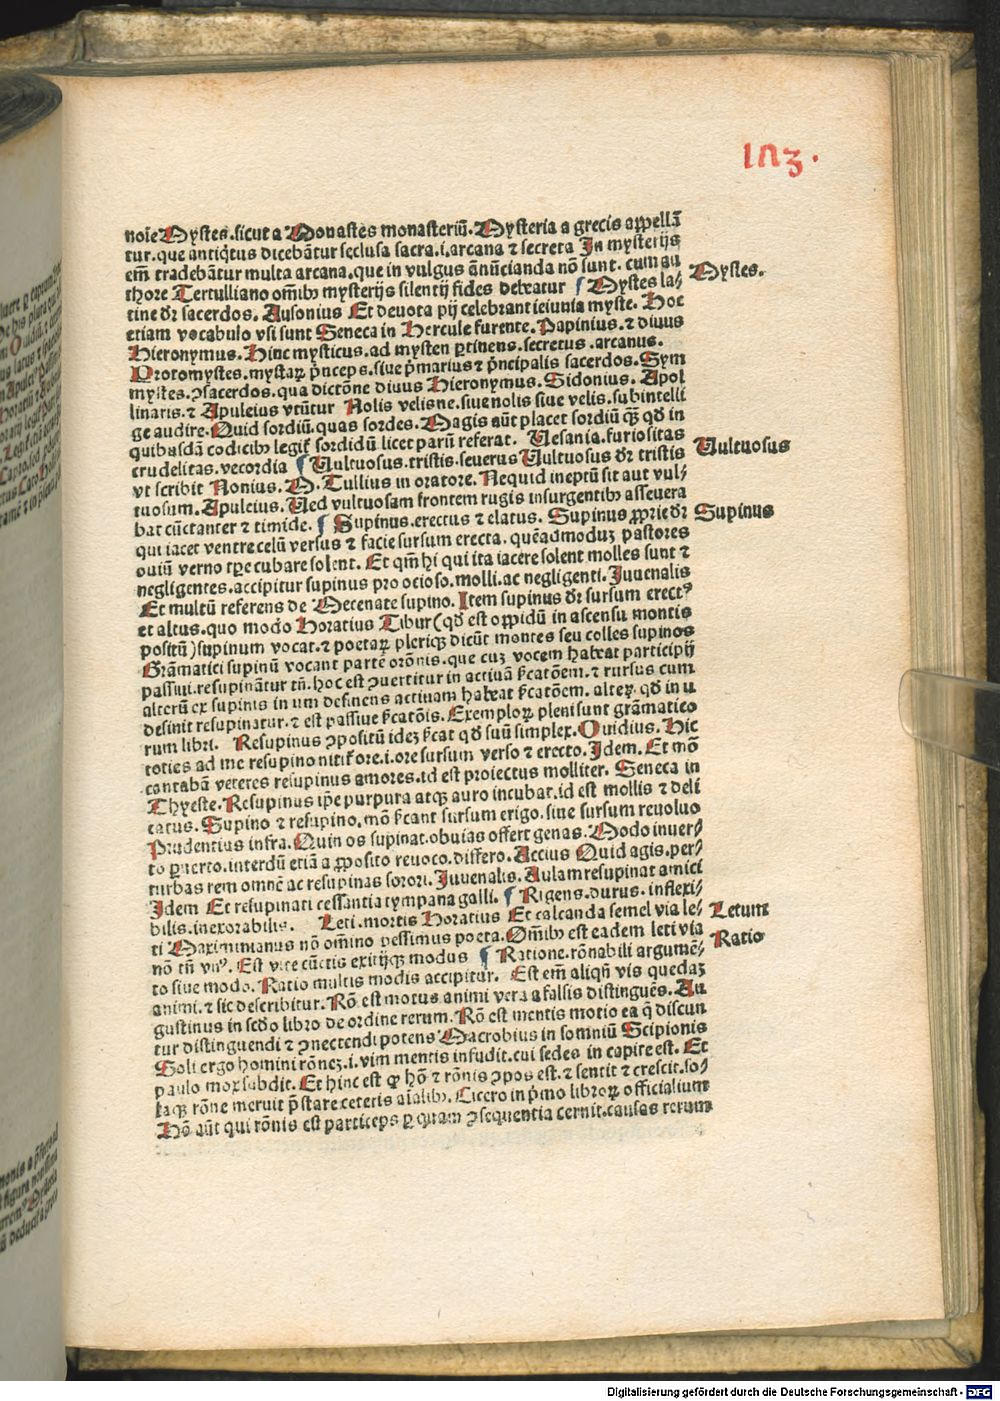 113.
noīe Mystes. sicut a Monastes monasteriū. Mysteria a grecis appellā
tur. que antiq̄tus dicebātur seclusa sacra. i. arcana ⁊ secreta In mysterijs
em̄ tradebātur multa arcana. que in vulgus ānūcianda nō sunt. cum au
thore Tertulliano om̄ibꝫ mysterijs silentij fides debeatur ¶ Mystes la⸗
Mystes.
tine dr̄ sacerdos. Ausonius Et deuota pij celebrant ieiunia myste. Hoc
etiam vocabulo vsi sunt Seneca in Hercule furente. Papinius. ⁊ diuus
Hieronymus. Hinc mysticus. ad mysten ꝑtinens. secretus. arcanus.
Protomystes. mystaꝝ p̄nceps. siue p̄marius ⁊ p̄ncipalis sacerdos. Sym
mystes. ꝯsacerdos. qua dictōne diuus Hieronymus. Sidonius. Apol
linaris. ⁊ Apuleius vtūtur Nolis velisne. siue nolis siue velis. subintelli
ge audire. Quid sordiū. quas sordes. Magis aūt placet sordiū q̄ꝫ qđ in
quibusdā codicibꝫ legit̄ sordidū licet parū referat. Uesania. furiositas
crudelitas. vecordia ¶ Uultuosus. tristis. seuerus Uultuosus dr̄ tristis
Uultuosus
vt scribit Nonius. M. Tullius in oratore. Nequid ineptū sit aut vul⸗
tuosum. Apuleius. Ued vultuosam frontem rugis insurgentibꝫ asseuera
bat cūctanter ⁊ timide. ¶ Supinus. erectus ⁊ elatus. Supinus ꝓprie dr̄
Supinus
qui iacet ventre celū versus ⁊ facie sursum erecta. quēadmoduꝫ pastores
ouiū verno tp̄e cubare solent. Et qm̄ hi qui ita iacere solent molles sunt ⁊
negligentes. accipitur supinus pro ocioso. molli. ac negligenti. Juuenalis
Et multū referens de Mecenate supino. Item supinus dr̄ sursum erectꝰ
et altus. quo modo Horatius Tibur (qđ est oppidū in ascensu montis
positū) supinum vocat. ⁊ poetaꝝ pleriqꝫ dicūt montes seu colles supinos
Grāmatici supinū vocant partē orōnis. que cuꝫ vocem habeat participij
passiui. resupinātur tn̄. hoc est ꝯuertitur in actiuā ſ̄catōem. ⁊ rursus cum
alterū ex supinis in um definens actiuam habeat ſ̄catōem. alteꝝ. qđ in u
desinit resupinatur. ⁊ est passiue ſ̄catōis. Exemploꝝ pleni sunt grāmatico
rum libri. Resupinus ꝯpositū ideꝫ ſ̄cat qđ suū simplex. Ouidius. Hic
toties ad me resupino nitit̄ ore. i. ore sursum verso ⁊ erecto. Idem. Et mō
cantabā veteres resupinus amores. id est proiectus molliter. Seneca in
Thyeste. Resupinus ip̄e purpura atqꝫ auro incubat. id est mollis ⁊ deli
catus. Supino ⁊ resupino. mō ſ̄cant sursum erigo. siue sursum reuoluo
Prudentius infra. Quin os supinat. obuias offert genas. Modo inuer⸗
to ꝑuerto. interdū etiā a ꝓposito reuoco. differo. Accius Quid agis. per⸗
turbas rem omnē ac resupinas sorori. Juuenalis. Aulam resupinat amici
Idem Et resupinati cessantia tympana galli. ¶ Rigens. durus. inflexi⸗
bilis. inexorabilis. Leti. mortis Horatius Et calcanda semel via le⸗
Letum
ti Maximianus nō om̄ino pessimus poeta. Om̄ibꝫ est eadem leti via
nō tn̄ vnꝰ. Est vite cūctis exitijqꝫ modus ¶ Ratione. rōnabili argumē⸗
Ratio
to siue modo. Ratio multis modis accipitur. Est em̄ aliqn̄ vis quedaꝫ
animi. ⁊ sic describitur. Rō est motus animi vera a falsis distinguēs. Au
gustinus in scđo libro de ordine rerum. Rō est mentis motio ea q̄ discun
tur distinguendi ⁊ ꝯnectendi potens Macrobius in somniū Scipionis
Soli ergo homini rōneꝫ. i. vim mentis infudit. cui sedes in capite est. Et
paulo mox subdit. Et hinc est ꝙ hō ⁊ rōnis ꝯpos est. ⁊ sentit ⁊ crescit. so⸗
laqꝫ rōne meruit p̄stare ceteris aīalibꝫ. Cicero in p̄mo libroꝝ officialium
Hō aūt qui rōnis est particeps ꝑ quam ꝯsequentia cernit. causas rerum
Digitalisierung gefördert durch die Deutsche Forschungsgemeinschaft - DFG